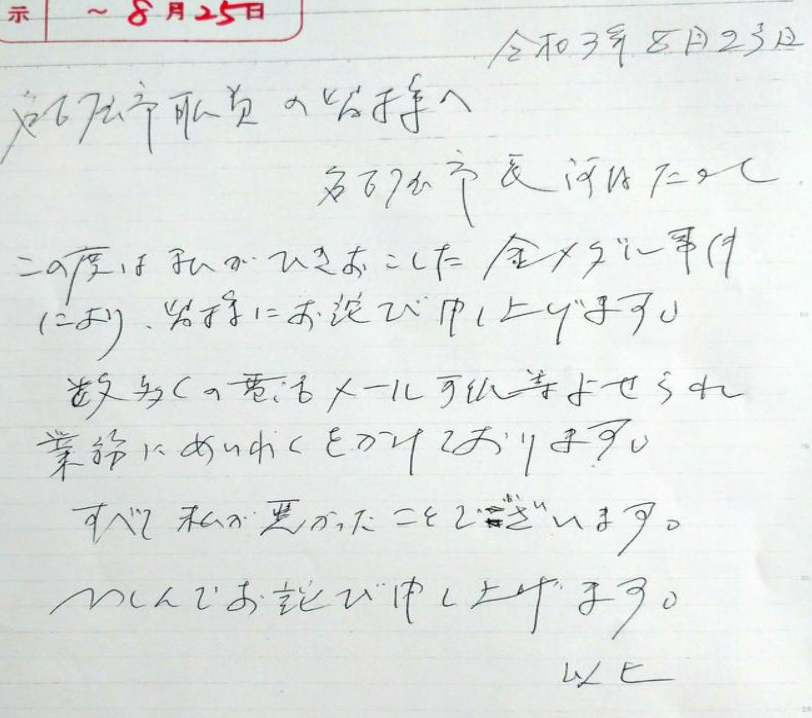 示 ～8月25日
令和3年8月23日
名古屋市職員の皆様へ
名古屋市長 河村たかし
この度は私がひきおこした金メダル事件
により、皆様にお詫び申し上げます。
数多くの電話メール手紙等よせられ
業務にめいわくをかけております。
すべて私が悪かったことでございます。
つしんでお詫び申し上げます。
以上